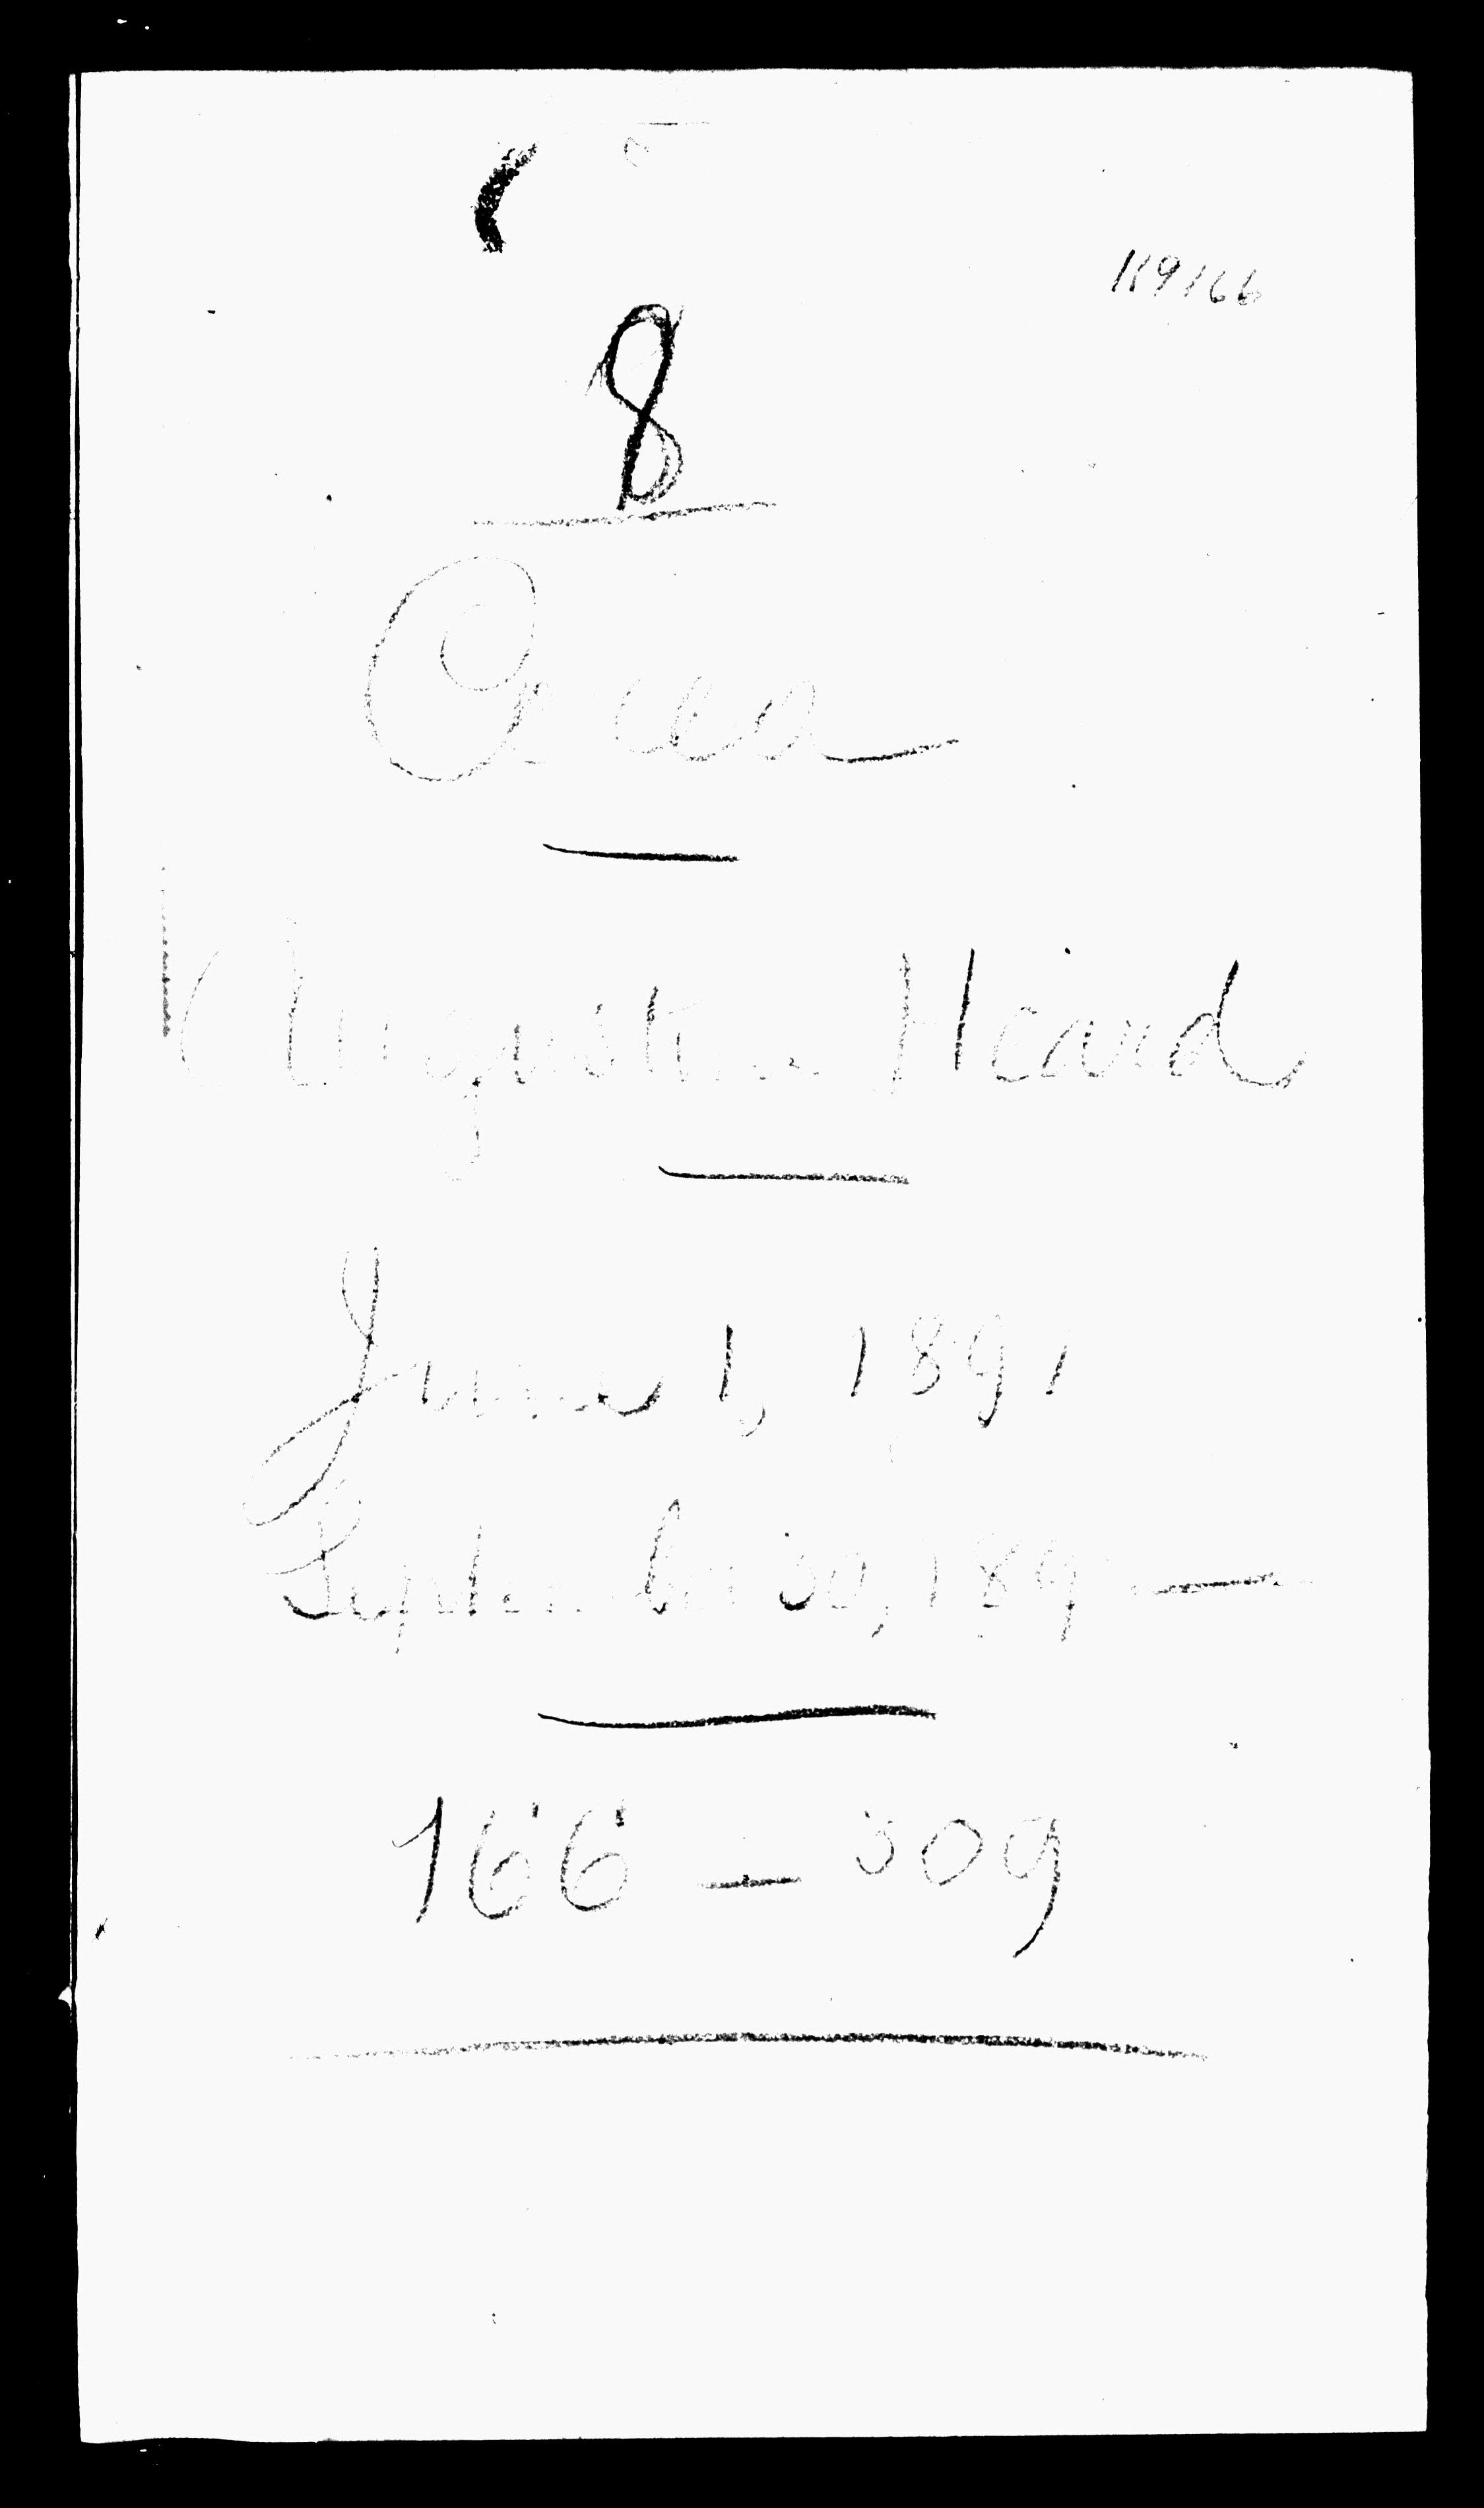 8
Corea
Augustine Heard
June 1, 1891
September 30, 189
166 — 309